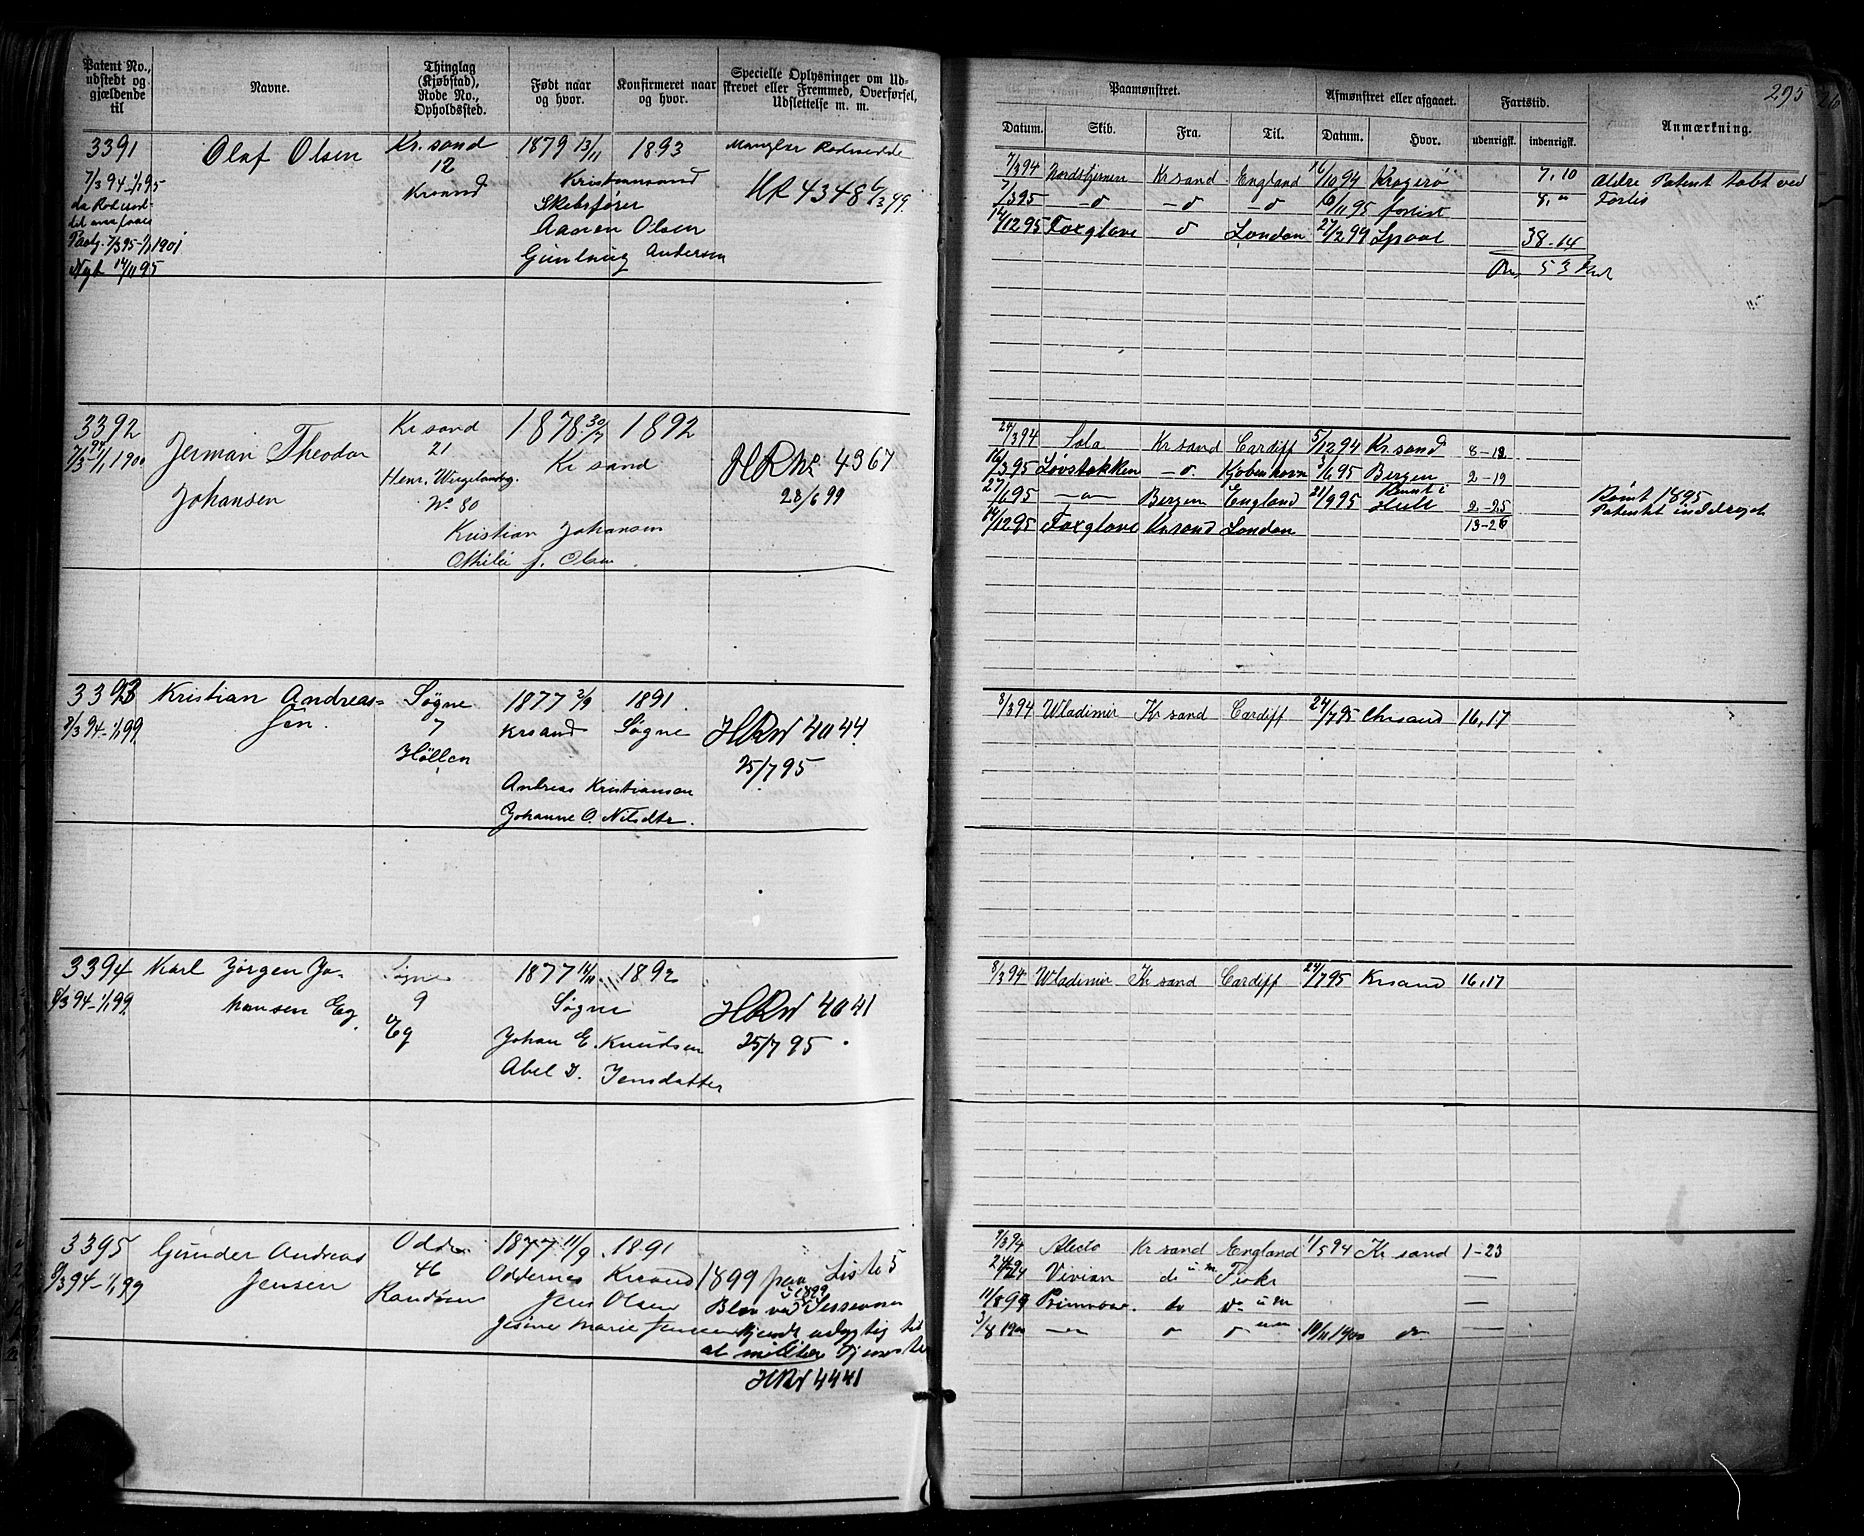 Patent No., udstedt og gjældende til
Navne.
Thinglag (Kjøbstad), Rode No., Opholdssted.
Født naar og hvor.
Konfirmeret naar og hvor.
Specielle Oplysninger om Udskrevet eller Fremmed, Overførsel, Udslettelse m. m.
Paamønstret.
Afmønstret eller afgaaet.
Fartstid.
295
Datum.
Skib.
Fra.
Til.
Datum.
Hvor.
udenrigsk.
indenrigsk.
Anmærkning.
3391
7/3 94-1/1 95
Nyt 14/11 95
Olaf Olsen
Kr.sand
12
Krsand
1879 13/11
1893
Kristianssand
Aanen Olsen
Andersen
Mangler Rodesedde
HR 4348 6/3 99.
7/3 94 Nordstjernen Kr sand England 16/10 94 Kragerø 7,10
7/3 95 -o- -o- -o- 6/11 95 forlist 8,"
Ældre Patent tabt ved
Forlis
14/12 95 Foxglove o London 27/2 99 38-14
53
3392
7/3 94-1/1 1900
Jerman Theodor
Johansen
Kr sand
21
Henr. Wergelandsg.
No 80
1878 30/7
1892
Kr sand
Kristian Johansen
Othilie f. Olsen
HR No 4367
28/6 99
24/3 94 Sola Kr sand Cardiff 5/12 94 Kr.sand 8-12
16/3 95 Løvstakken -o- Kjøbenhavn 1/6 95 Bergen 2-19
27/6 95 -o- Bergen England 21/9 95 Rømt i
Hull 2-25
Rømt 1895
Patentet inddraget
14/12 95 Foxglove Krsand London 13-26
3393
8/3 94-1/1 99
Kristian Andreas-
sen.
Søgne
7
Høllen
1877 2/9
1891
Krsand
Søgne
Andreas Kristiansen
Johanne O. Nilsdtr.
HRN 4044
25/7 95
8/3 94 Wladimir Kr sand Cardiff 24/7 95 Chrsand 16,17
3394
8/3 94-1/1 99
Karl Jørgen Jo-
hansen Eg.
Søgne
9
Eg
1877 11/11
1892
Søgne
Johan E. Knudsen
Abel J. Jensdatter
HRN 4041
25/7 95
8/3 94 Wladimir Kr sand Cardiff 24/7 95 Krsand 16,17
3395
8/3 94-1/1 99
Gunder Andreas
Jensen
Oddr.
46
Randøen
1877 11/9
1891
Oddernes
Krsand
Jens Olsen
Jesine Marie Jensen
1899 paa Liste 5
Blev ved Sessionen i 1899
kjendt udygtig til
al militær Tjeneste
HRN 4441
9/3 94 Alecto Kr sand England 1/5 94 Kr sand 1-23
Vivian do u m Fiske —
11/8 99 Primrose do do u m —
3/8 1900 -o- o o um 10/11 1900 do —